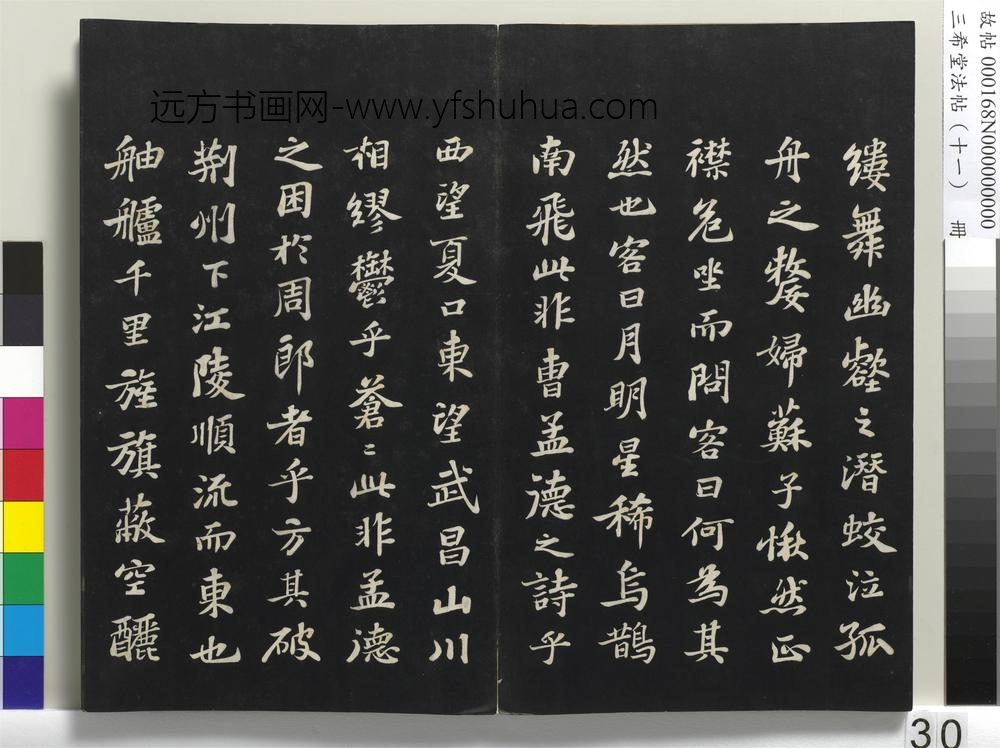 远方书画网-www.yfshuhua.com
縷舞幽壑之潛蛟泣孤
舟之嫠婦蘇子愀然正
襟危坐而問客曰何為其
然也客曰月明星稀烏鵲
南飛此非曹孟德之詩乎
西望夏口東望武昌山川
相繆鬱乎蒼〻此非孟德
之困於周郎者乎方其破
荊州下江陵順流而東也
舳艫千里旌旗蔽空釃
故帖 000168N000000000
三希堂法帖（十一） 册
30